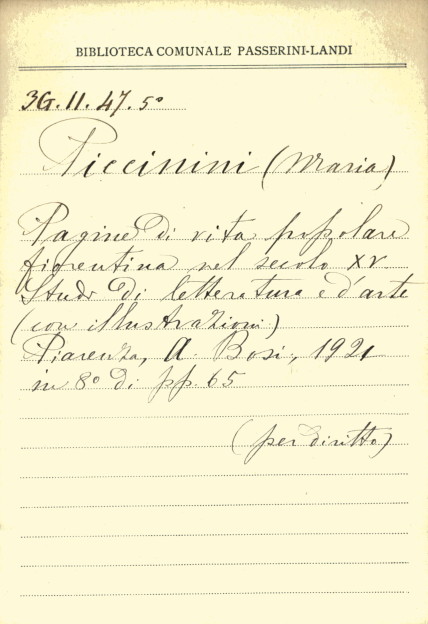 BIBLIOTECA COMUNALE PASSERINI-LANDI
3G.II.47.5º
Piccinini (Maria)
Pagine di vita popolare
fiorentina nel secolo XV
Studi di letteratura e d'arte
(con illustrazioni)
Piacenza, A. Bosi, 1921
in 8º di pp. 65
(per diritto)